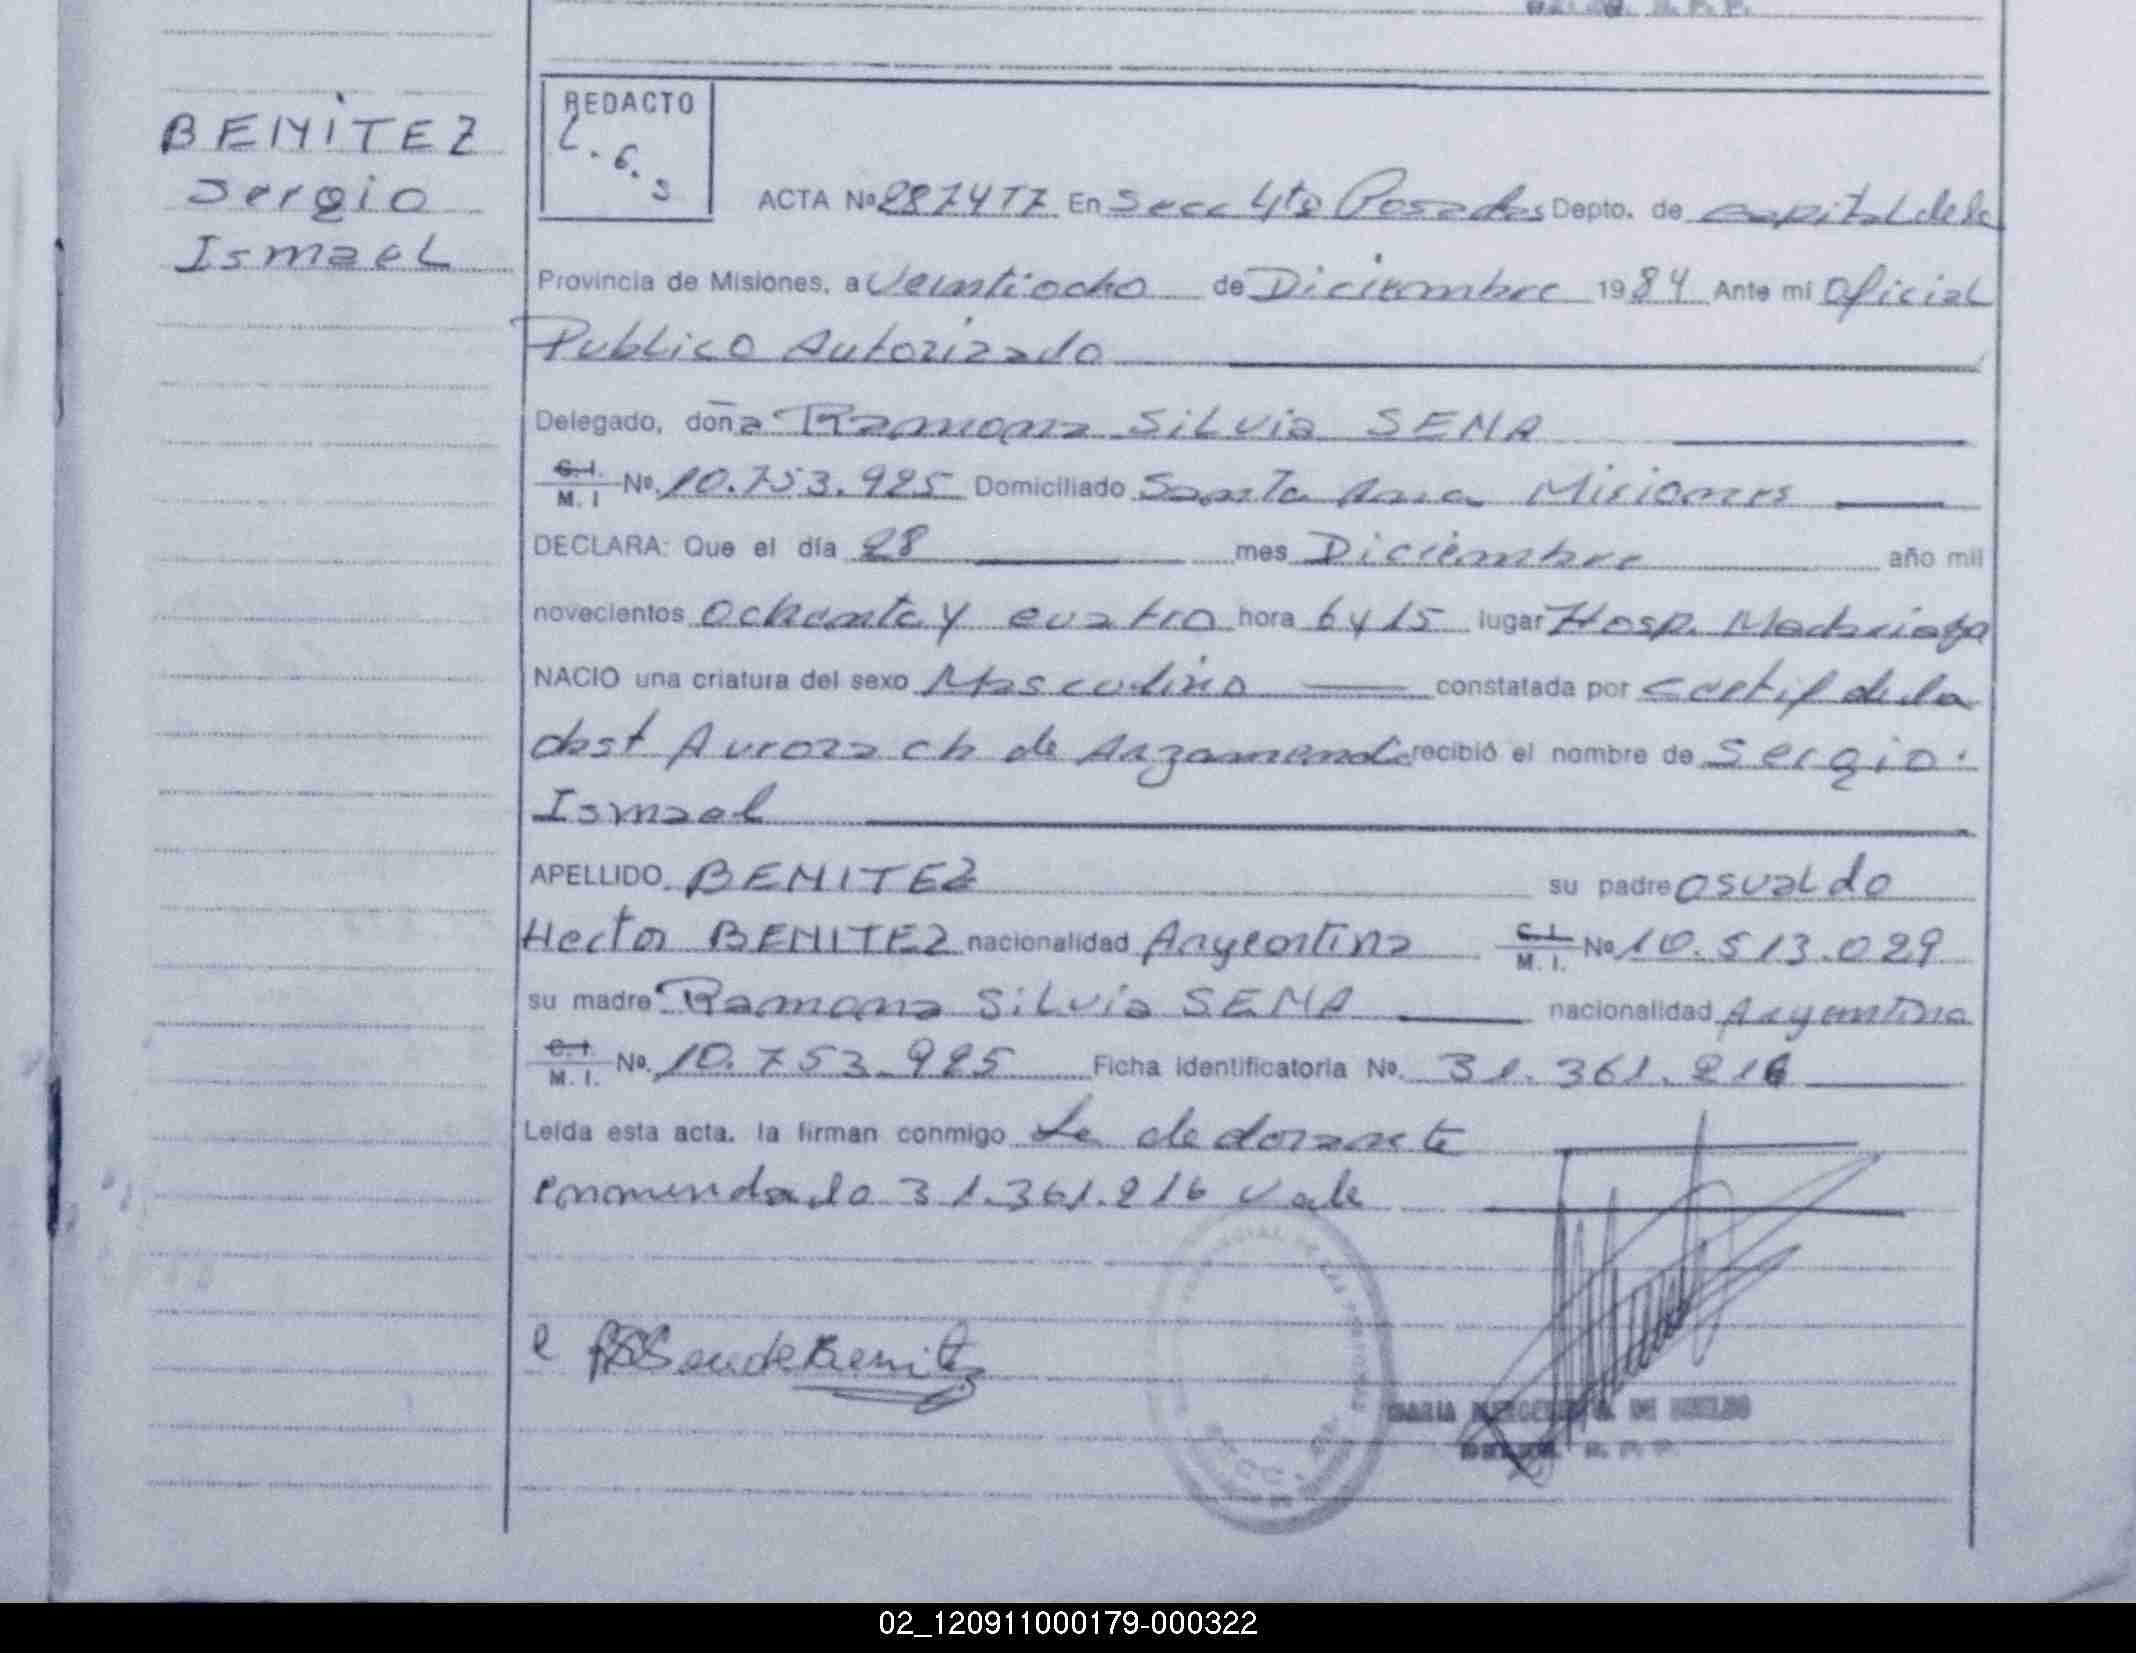 BENITEZ
Sergio
Ismael
REDACTO
L. G. S
ACTA Nº 2874T7 En Secc 4ta Posadas Depto. de capital de la
Provincia de Misiones, a Veintiocho de Diciembre 1984 Ante mi Oficial
Publico Autorizado
Delegado, doña Ramona Silvia SENA
C.I. M. I Nº. 10.753.925 Domiciliado Santa Ana Misiones
DECLARA: Que el día 28 mes Diciembre año mil
novecientos Ochenta y cuatro hora 6 y 15 lugar Hosp. Madariaga
NACIO una criatura del sexo Masculino constatada por certif de la
obst Aurora ch de Arzamendi recibió el nombre de Sergio
Ismael
APELLIDO BENITEZ su padre Osvaldo
Hector BENITEZ nacionalidad Argentina C.I. M. I. Nº 10.513.029
su madre Ramona Silvia SENA nacionalidad Argentina
C.I. M. I. Nº. 10.753.925 Ficha identificatoria Nº. 31.361.216
Leída esta acta, la firman conmigo La declarante
enmendado 31.361.216 Vale
RSSena de Benitez
MARIA DE
02_120911000179-000322